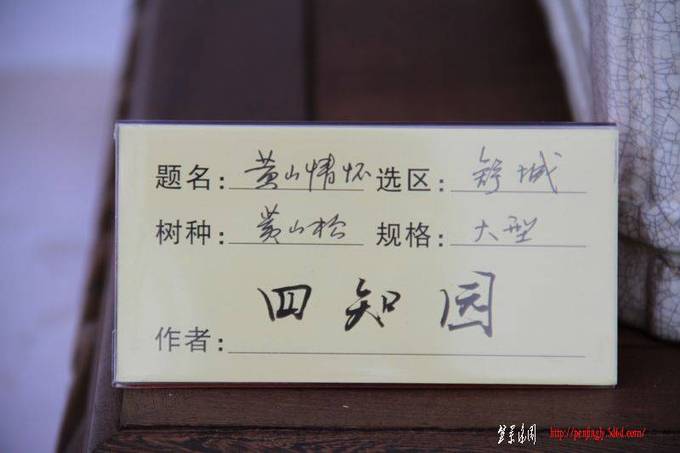 题名：黄山情怀 选区：舒城
树种：黄山松 规格：大型
作者：四知园
http://penjingly.5d6d.com/